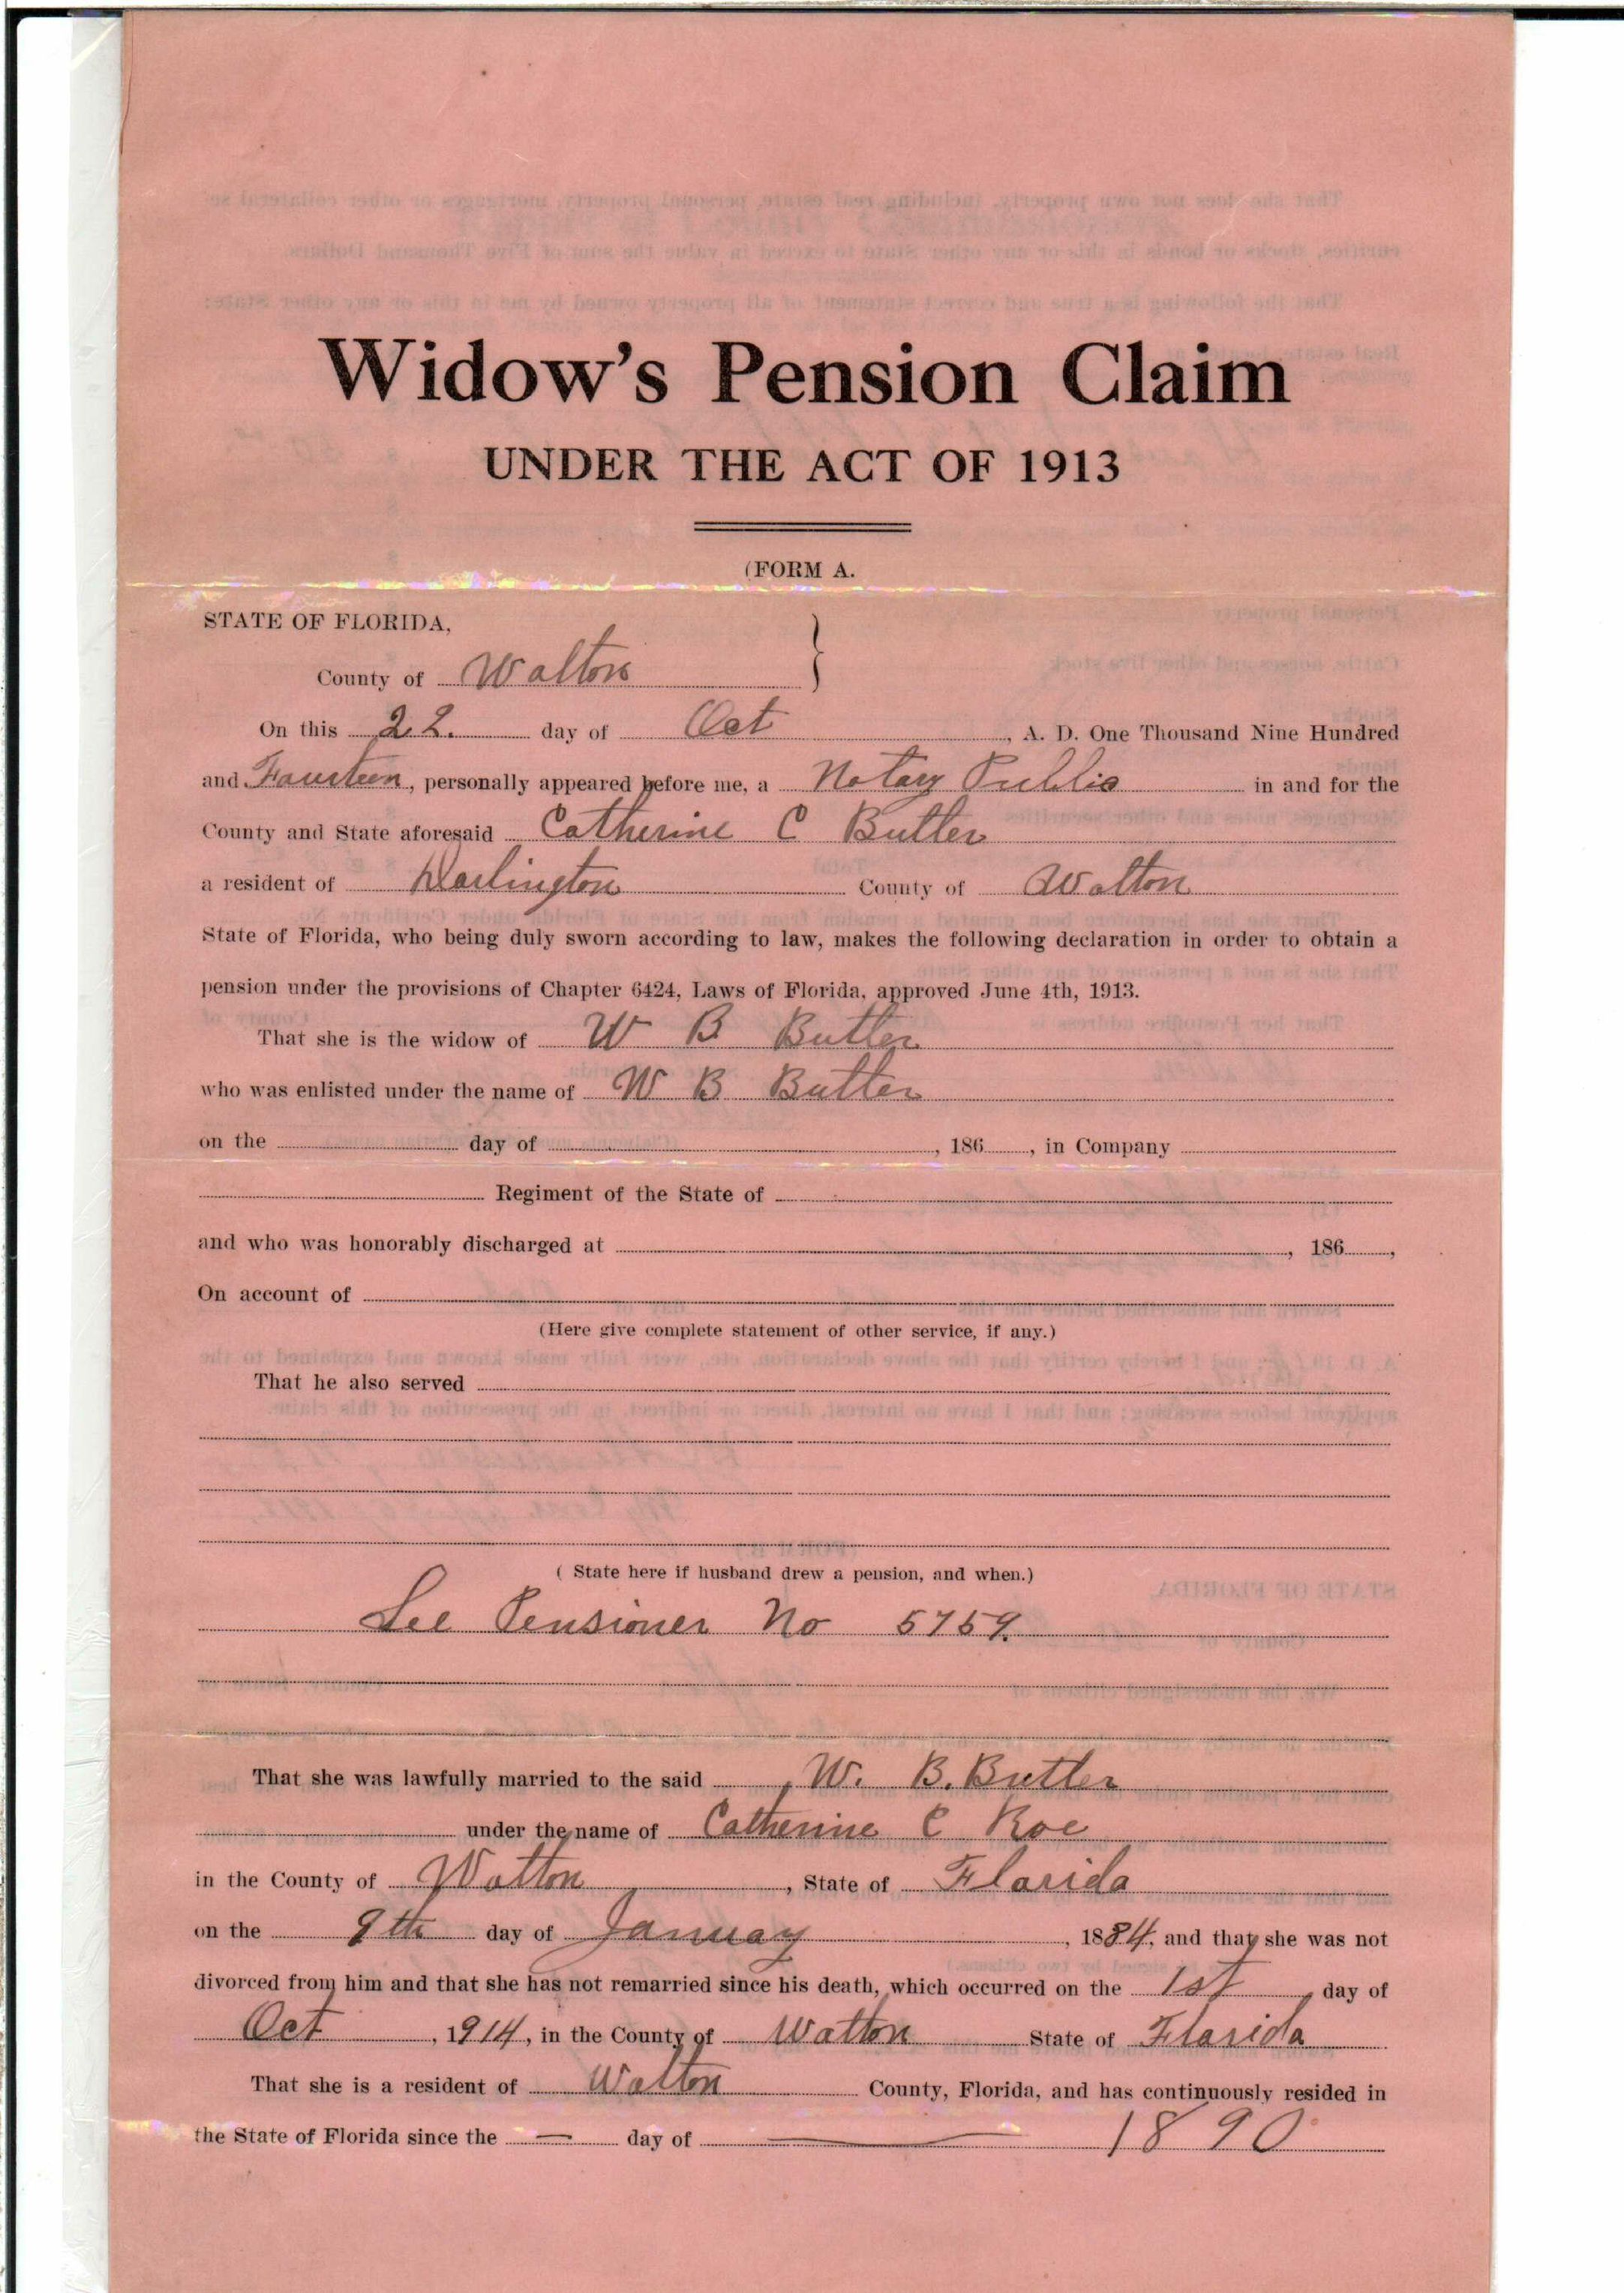 Widow's Pension Claim
UNDER THE ACT OF 1913
(FORM A.
STATE OF FLORIDA,
County of Walton }
On this 22. day of Oct, A. D. One Thousand Nine Hundred
and Fourteen, personally appeared before me, a Notary Public in and for the
County and State aforesaid Catherine C Butler
a resident of Darlington County of Walton
State of Florida, who being duly sworn according to law, makes the following declaration in order to obtain a
pension under the provisions of Chapter 6424, Laws of Florida, approved June 4th, 1913.
That she is the widow of W B Butler
who was enlisted under the name of W B Butler
on the day of , 186 , in Company
Regiment of the State of
and who was honorably discharged at , 186 ,
On account of
(Here give complete statement of other service, if any.)
That he also served
( State here if husband drew a pension, and when.)
See Pensioner No 5759.
That she was lawfully married to the said W. B. Butler
under the name of Catherine C Roe
in the County of Walton, State of Florida
on the 9th day of January, 1884, and that she was not
divorced from him and that she has not remarried since his death, which occurred on the 1st day of
Oct, 1914, in the County of Walton State of Florida
That she is a resident of Walton County, Florida, and has continuously resided in
the State of Florida since the — day of — 1890